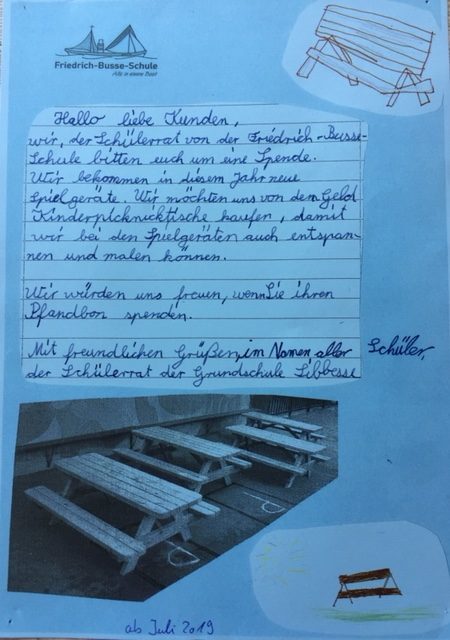 Friedrich-Busse-Schule
Alle in einem Boot
Hallo liebe Kunden,
wir, der Schülerrat von der Friedrich-Busse-
Schule bitten euch um eine Spende.
Wir bekommen in diesem Jahr neue
Spielgeräte. Wir möchten uns von dem Geld
Kinderpicknicktische kaufen, damit
wir bei den Spielgeräten auch entspan-
nen und malen können.
Wir würden uns freuen, wenn Sie ihren
Pfandbon spenden.
Mit freundlichen Grüßen, im Namen aller Schüler,
der Schülerrat der Grundschule Sibbesse
ab Juli 2019